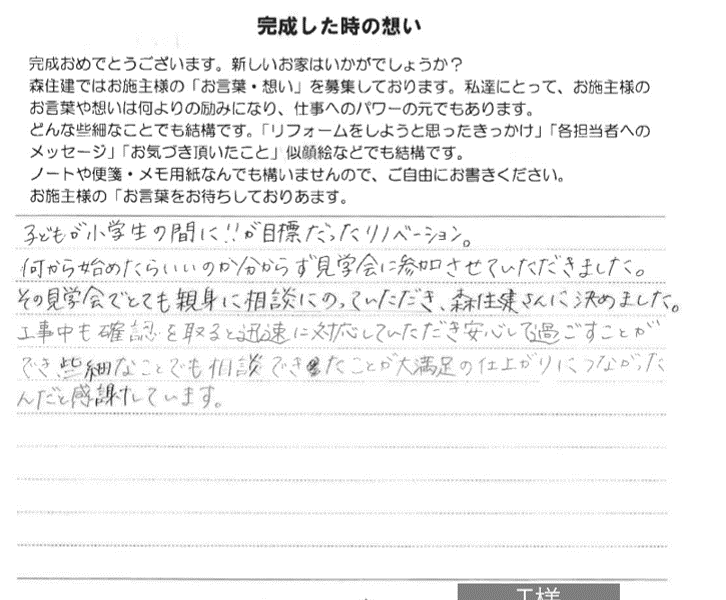 完成した時の想い
完成おめでとうございます。新しいお家はいかがでしょうか？
森住建ではお施主様の「お言葉・想い」を募集しております。私達にとって、お施主様の
お言葉や想いは何よりの励みになり、仕事へのパワーの元でもあります。
どんな些細なことでも結構です。「リフォームをしようと思ったきっかけ」「各担当者への
メッセージ」「お気づき頂いたこと」似顔絵などでも結構です。
ノートや便箋・メモ用紙なんでも構いませんので、ご自由にお書きください。
お施主様の「お言葉をお待ちしておりあます。
子どもが小学生の間に!!が目標だったリノベーション。
何から始めたらいいのか分からず見学会に参加させていただきました。
その見学会でとても親身に相談にのっていただき、森住建さんに決めました。
工事中も確認を取ると迅速に対応していただき安心して過ごすことが
でき些細なことでも相談できたことが大満足の仕上がりにつながった
んだと感謝しています。
T様